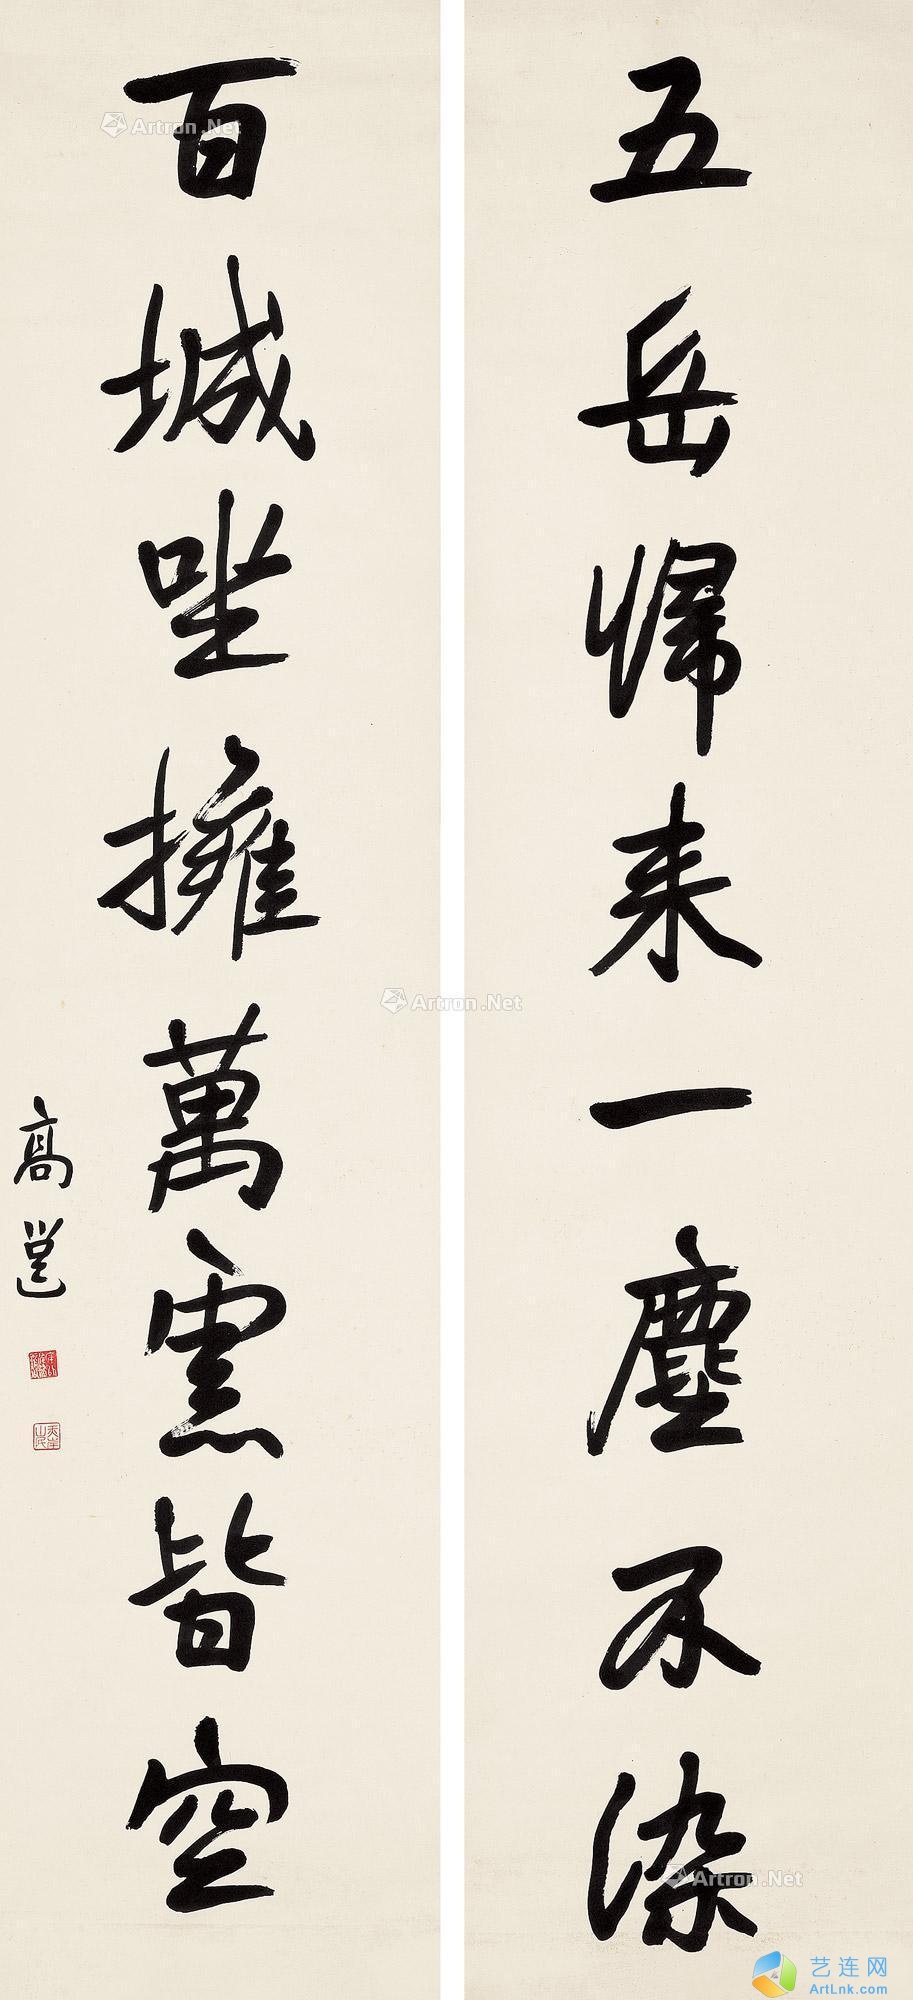 五岳歸来一塵不染
百城坐擁萬慮皆空
高邕
Artron.Net
Artron.Net
Artron.Net
艺连网
ArtLnk.com